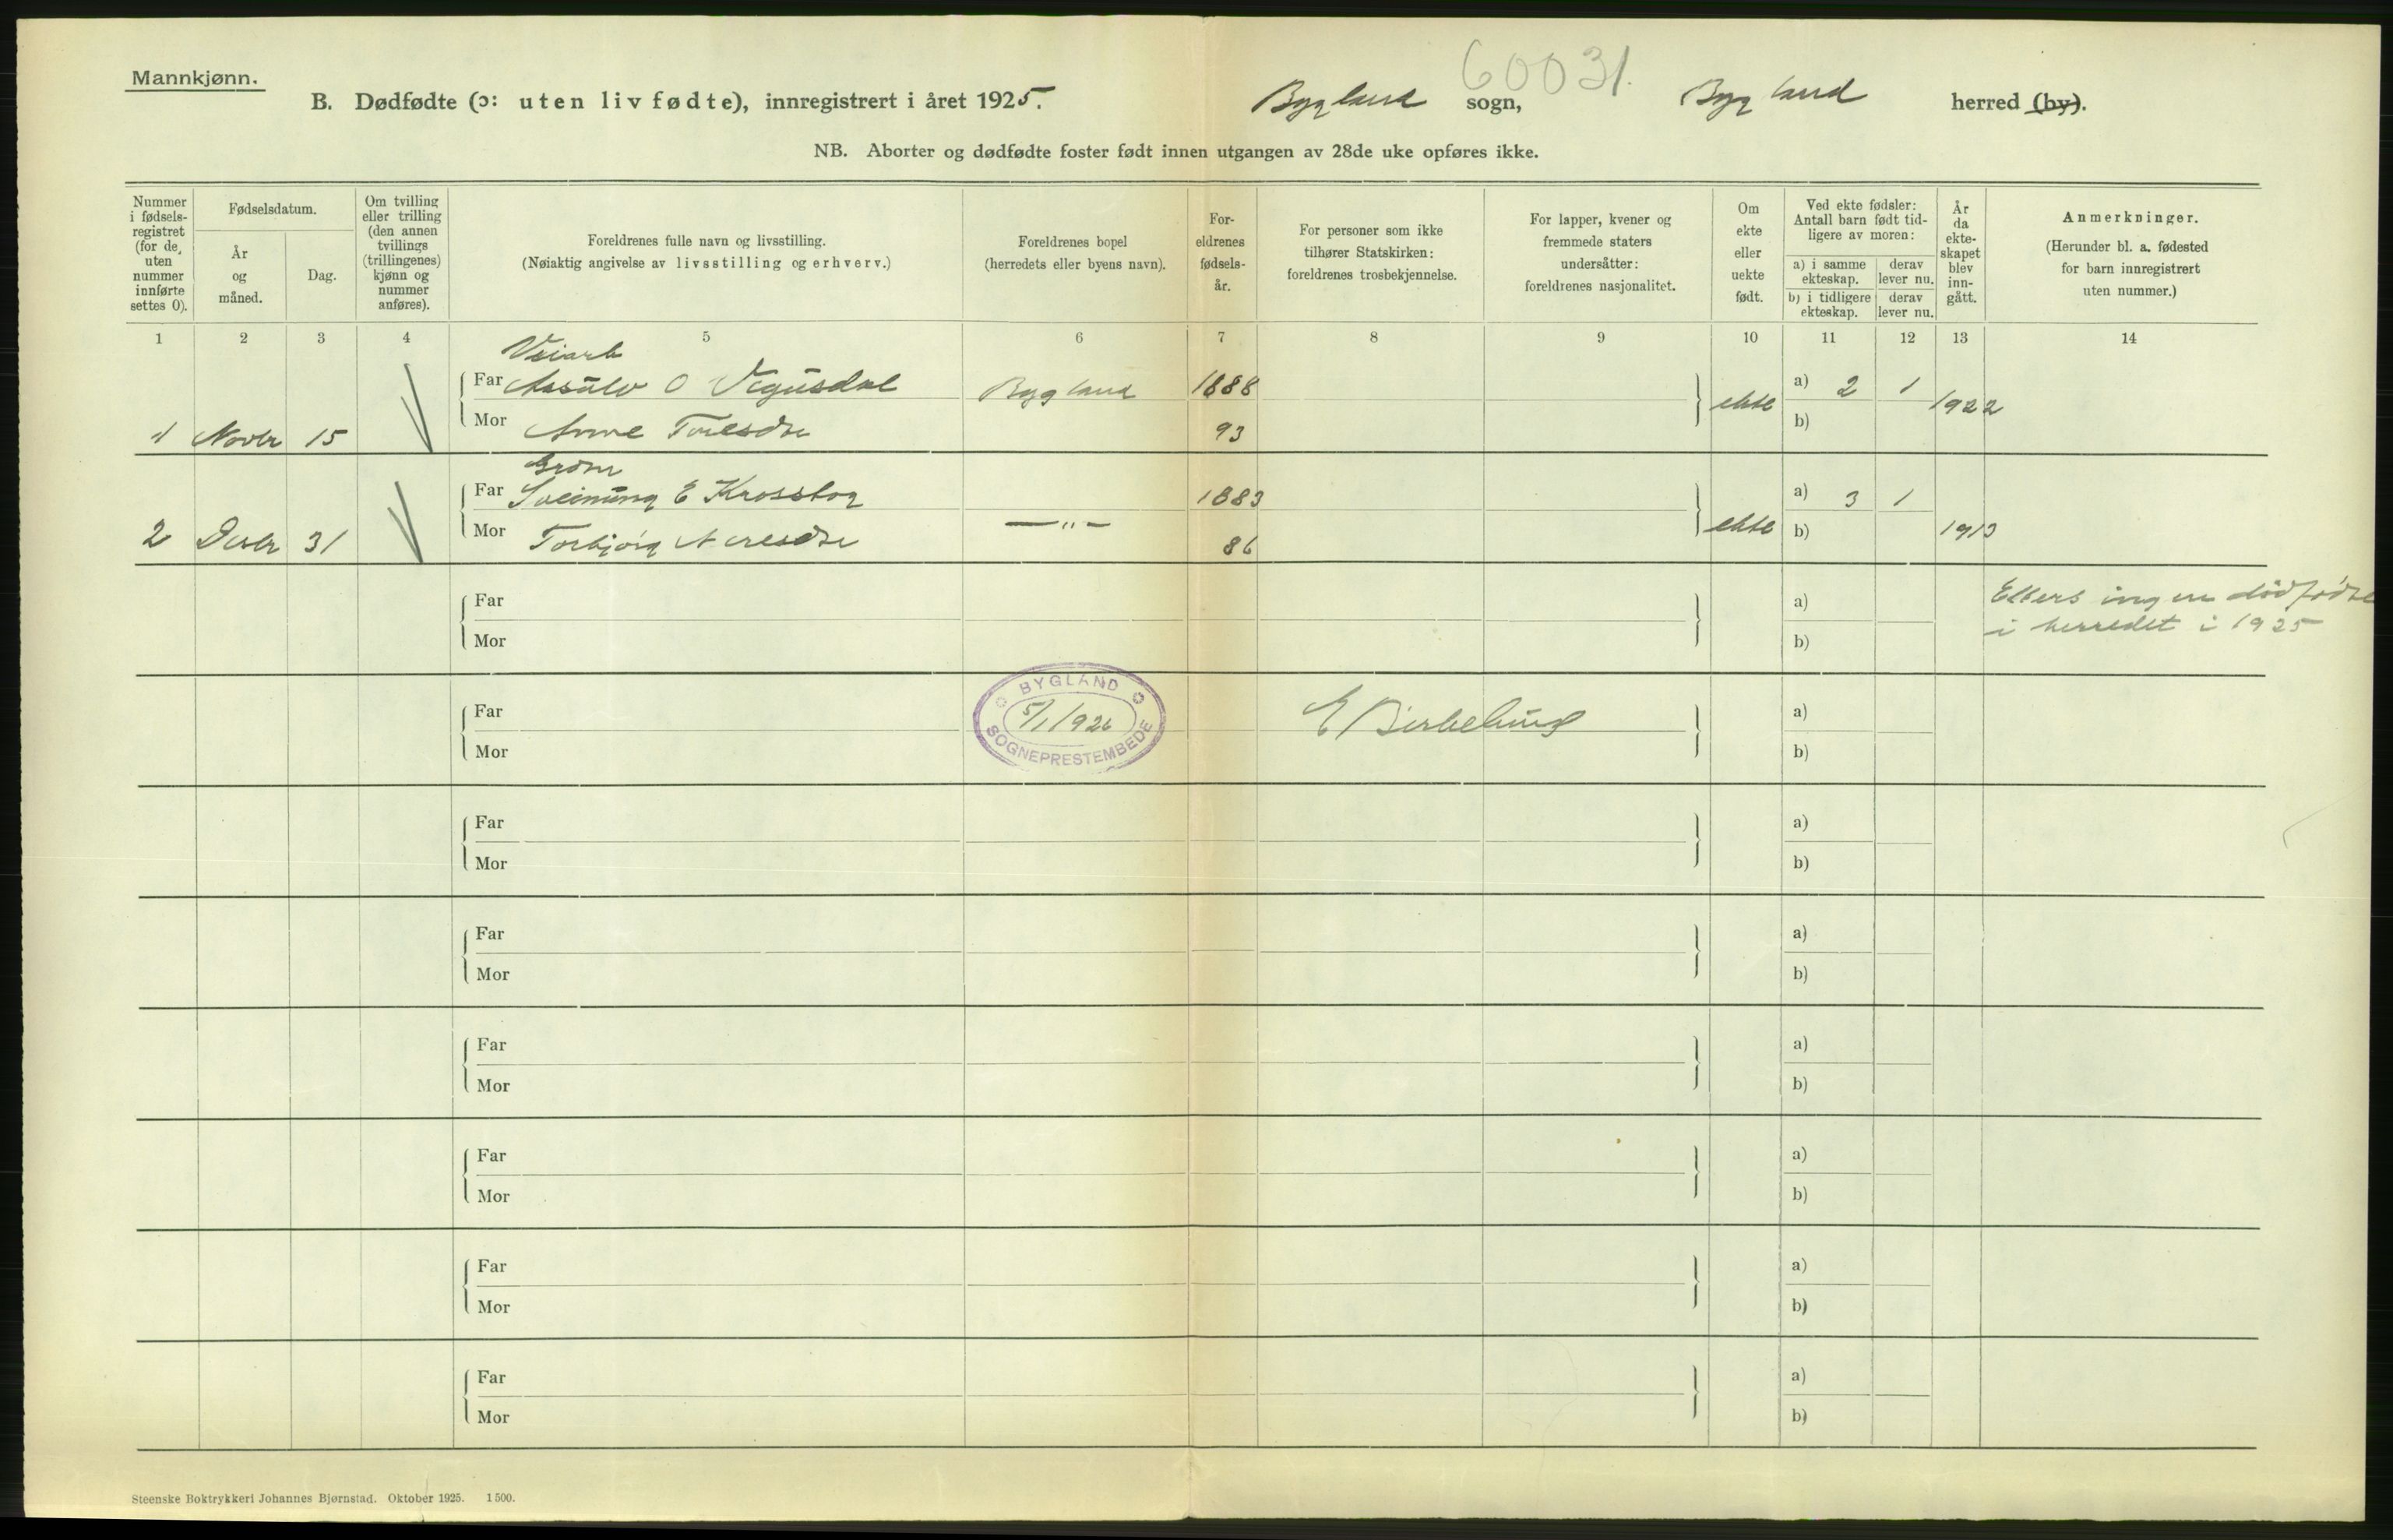 Mannkjønn.
60031.
B. Dødfødte (ɔ: uten liv fødte), innregistrert i året 1925. Bygland sogn, Bygland herred (by).
NB. Aborter og dødfødte foster født innen utgangen av 28de uke opføres ikke.
Nummer
i fødsels-
registret
(for de
uten
nummer
innførte
settes 0).
Fødselsdatum.
År
og
måned.
Dag.
Om tvilling
eller trilling
(den annen
tvillings
(trillingenes)
kjønn og
nummer
anføres).
Foreldrenes fulle navn og livsstilling.
(Nøiaktig angivelse av livsstilling og erhverv.)
Foreldrenes bopel
(herredets eller byens navn).
For-
eldrenes
fødsels-
år.
For personer som ikke
tilhører Statskirken:
foreldrenes trosbekjennelse.
For lapper, kvener og
fremmede staters
undersåtter:
foreldrenes nasjonalitet.
Om
ekte
eller
uekte
født.
Ved ekte fødsler:
Antall barn født tid-
ligere av moren:
a) i samme
ekteskap.
derav
lever nu.
b) i tidligere
ekteskap.
derav
lever nu.
År
da
ekte-
skapet
blev
inn-
gått.
Anmerkninger.
(Herunder bl. a. fødested
for barn innregistrert
uten nummer.)
1 2 3 4 5 6 7 8 9 10 11 12 13 14
Veiarb
Far Aasulv O Vegusdal Bygland 1888 ekte a) 2 1 1922
1 Novbr 15 Mor Anne Toresdtr 93 b)
Far Sveinung E Krossbog 1883 a) 3 1
2 Desbr 31 Mor Torbjørg —"— 86 ekte b) 1913
Far a) Ellers ingen dødfødte
Mor b) i herredet i 1925
BYGLAND
Far 5/1 1926 E Birkelund a)
SOGNEPRESTEMBEDE
Mor b)
Far a)
Mor b)
Far a)
Mor b)
Far a)
Mor b)
Far a)
Mor b)
Far a)
Mor b)
Far a)
Mor b)
Steenske Boktrykkeri Johannes Bjørnstad. Oktober 1925. 1500.